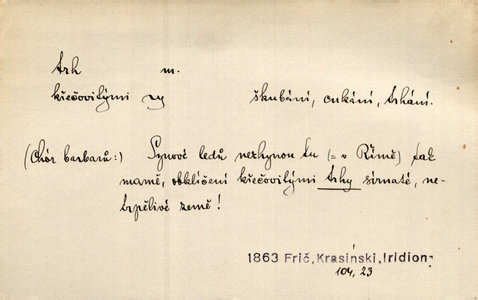 trh m.
křečovitými ~y škubání, cukání, trhání.
(Chór barbarů:) Synové ledů nezhynou tu (= v Římě) tak
marně, obklíčeni křečovitými trhy sirnaté, ne-
trpělivé země!
1863 Frič, Krasiński, Iridion
104, 23